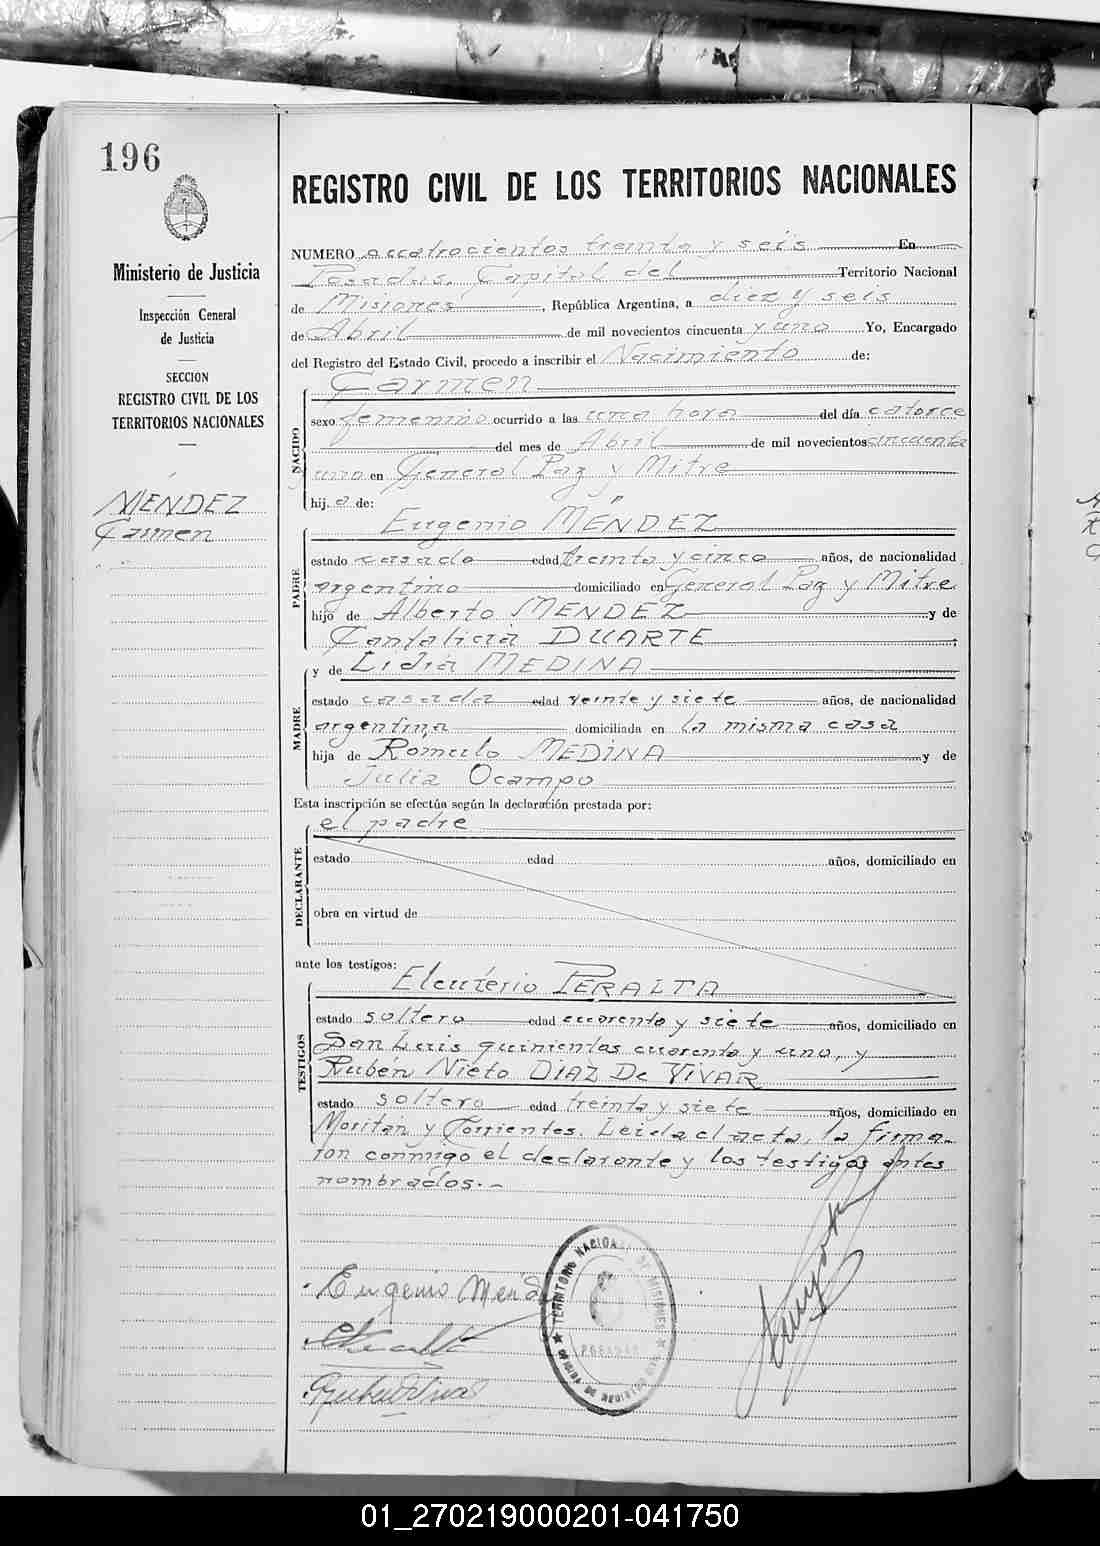 196
Ministerio de Justicia
Inspección General
de Justicia
SECCION
REGISTRO CIVIL DE LOS
TERRITORIOS NACIONALES
MÉNDEZ
Carmen
REGISTRO CIVIL DE LOS TERRITORIOS NACIONALES
NUMERO cuatrocientos treinta y seis En
Posadas, Capital del Territorio Nacional
de Misiones, República Argentina, a diez y seis
de Abril de mil novecientos cincuenta y uno Yo, Encargado
del Registro del Estado Civil, procedo a inscribir el Nacimiento de:
NACIDO
Carmen
sexo femenino ocurrido a las una hora del día catorce
del mes de Abril de mil novecientos cincuenta
y uno en General Paz y Mitre
hij a de:
PADRE
Eugenio MÉNDEZ
estado casado edad treinta y cinco años, de nacionalidad
argentino domiciliado en General Paz y Mitre
hijo de Alberto MENDEZ y de
Cantalicia DUARTE ;
MADRE
y de Lidia MEDINA
estado casada edad veinte y siete años, de nacionalidad
argentina domiciliada en la misma casa
hija de Romulo MEDINA y de
Julia Ocampo
Esta inscripción se efectúa según la declaración prestada por:
DECLARANTE
el padre
estado edad años, domiciliado en
obra en virtud de
ante los testigos:
TESTIGOS
Eleuterio PERALTA
estado soltero edad cuarenta y siete años, domiciliado en
San Luis quinientos cuarenta y uno, y
Rubén Nieto DIAZ De VIVAR
estado soltero edad treinta y siete años, domiciliado en
Moritán y Corrientes. Leida el acta, la firma-
ron conmigo el declarante y los testigos antes
nombrados.-
Eugenio Mend
TERRITORIO NACIONAL DE MISIONES
POSADAS
01_270219000201-041750